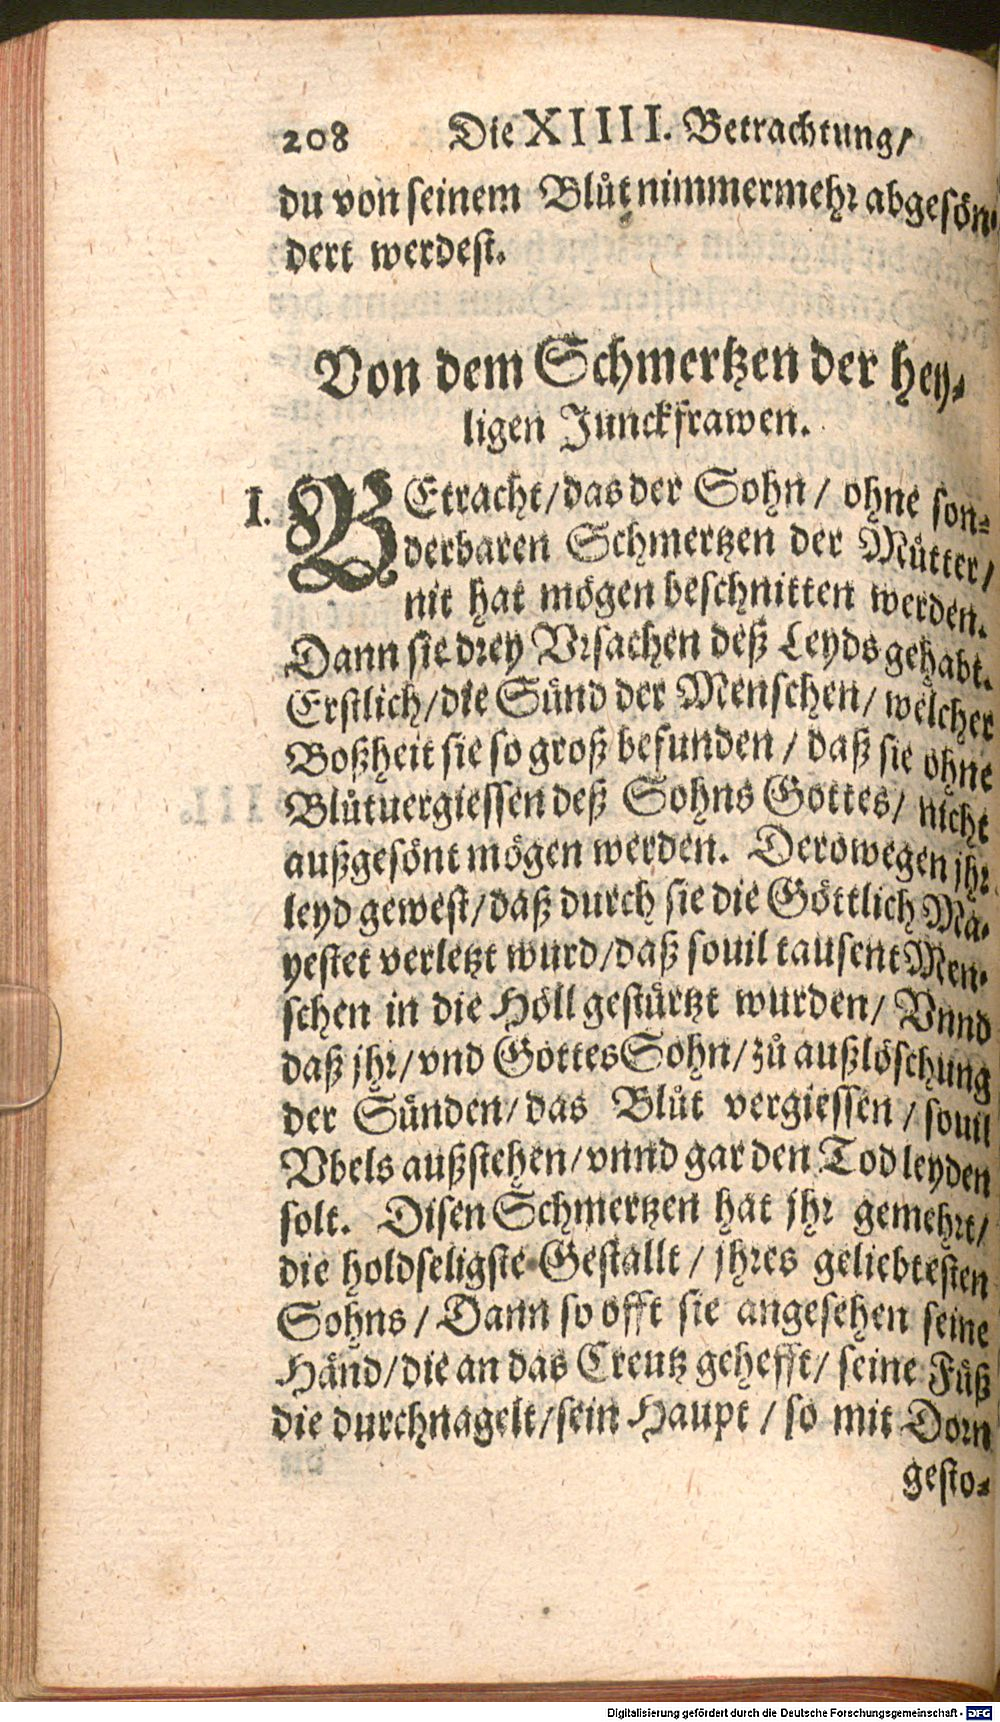 208 Die XIIII. Betrachtung/
du von seinem Blůt nimmermehr abgesön-
dert werdest.
Von dem Schmertzen der hey-
ligen Junckfrawen.
I. BEtracht/das der Sohn/ ohne son-
derbaren Schmertzen der Můtter/
nit hat mögen beschnitten werden.
Dann sie drey Vrsachen deß Leyds gehabt.
Erstlich/die Sünd der Menschen/ welcher
Boßheit sie so groß befunden/ daß sie ohne
Blůtuergiessen deß Sohns Gottes/ nicht
außgesönt mögen werden. Derowegen jhr
leyd gewest/daß durch sie die Göttlich Ma-
yestet verletzt wurd/daß souil tausent Men-
schen in die Höll gestürtzt wurden/ Vnnd
daß jhr/vnd Gottes Sohn/zů außlöschung
der Sünden/das Blůt vergiessen/souil
Vbels außstehen/vnnd gar den Tod leyden
solt. Disen Schmertzen hat jhr gemehrt/
die holdseligste Gestallt/ jhres geliebtesten
Sohns/ Dann so offt sie angesehen seine
Händ/die an das Creutz gehefft/ seine Füß
die durchnagelt/sein Haupt/so mit Dorn
gesto-
Digitalisierung gefördert durch die Deutsche Forschungsgemeinschaft - DFG